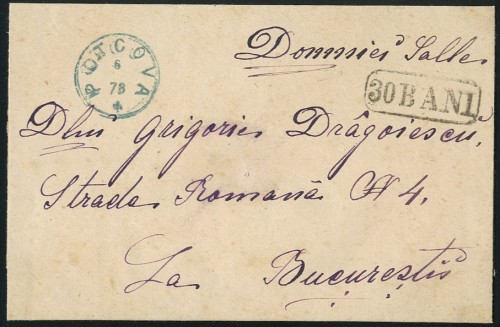 POTCOVA
6
78
Domniei Salle
30 BANI
Dlui Grigorie Drăgoiescu,
Strada Romană # 4.
La București